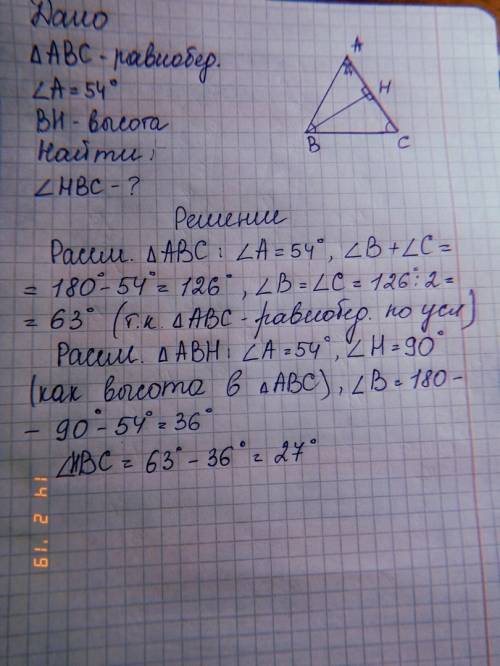 Дано
△ABC - равнобер.
∠A = 54°
BH - высота
Найти:
∠HBC - ?
A
H
B
C
Решение
Рассм. △ABC: ∠A = 54°, ∠B + ∠C =
= 180° - 54° = 126°, ∠B = ∠C = 126° : 2 =
= 63° (т.к. △ABC - равнобер. по усл)
Рассм. △ABH: ∠A = 54°, ∠H = 90°
(как высота в △ABC), ∠B = 180 -
- 90° - 54° = 36°
∠HBC = 63° - 36° = 27°
14 2 '19